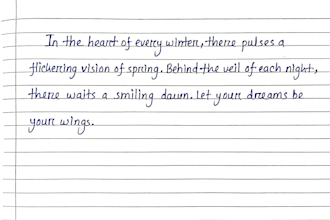 In the heart of every winter, there pulses a
flickering vision of spring. Behind the veil of each night,
there waits a smiling dawn. Let your dreams be
your wings.